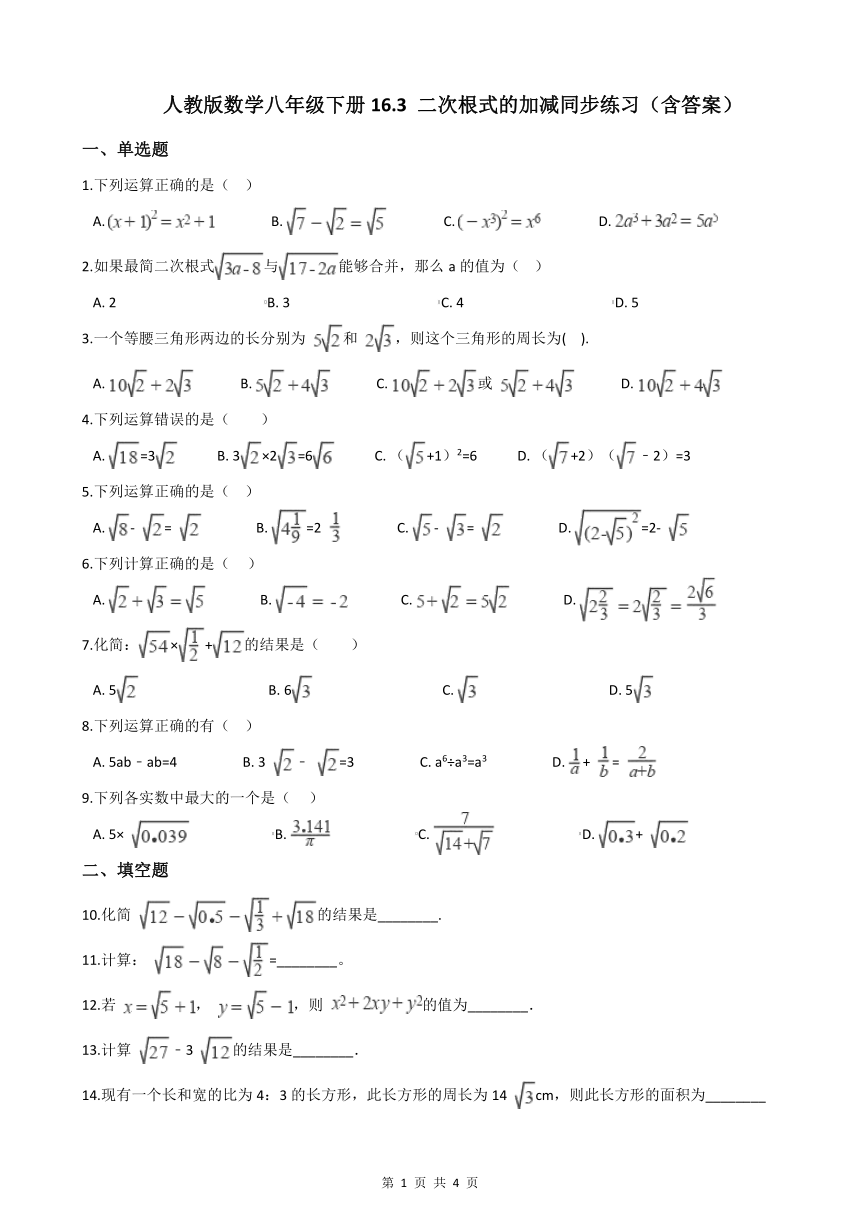 人教版数学八年级下册16.3 二次根式的加减同步练习（含答案）
一、单选题
1.下列运算正确的是（ ）
A. (x+1)²=x²+1 B. √7−√2=√5 C. (−x³)²=x⁶ D. 2a³+3a²=5a⁵
2.如果最简二次根式√(3a-8)与√(17-2a)能够合并，那么 a 的值为（ ）
A. 2 B. 3 C. 4 D. 5
3.一个等腰三角形两边的长分别为 5√2和 2√3，则这个三角形的周长为( ).
A. 10√2+2√3 B. 5√2+4√3 C. 10√2+2√3或 5√2+4√3 D. 10√2+4√3
4.下列运算错误的是（ ）
A. √18=3√2 B. 3√2×2√3=6√6 C. （√5+1）²=6 D. （√7+2）（√7﹣2）=3
5.下列运算正确的是（ ）
A. √8- √2= √2 B. √(4 1/9)=2 1/3 C. √5- √3= √2 D. √((2-√5)²)=2- √5
6.下列计算正确的是（ ）
A. √2+√3=√5 B. √-4=-2 C. 5+√2=5√2 D. √(2 2/3)=2√(2/3)=2√6/3
7.化简：√54×√(1/2)+√12的结果是（ ）
A. 5√2 B. 6√3 C. √3 D. 5√3
8.下列运算正确的有（ ）
A. 5ab﹣ab=4 B. 3 √2﹣ √2=3 C. a⁶÷a³=a³ D. 1/a+ 1/b= 2/(a+b)
9.下列各实数中最大的一个是（ ）
A. 5× √0.039 B. 3.141/π C. 7/(√14+√7) D. √0.3+ √0.2
二、填空题
10.化简 √12−√0.5−√(1/3)+√18的结果是________.
11.计算： √18−√8−√(1/2)=________。
12.若 x=√5+1， y=√5−1，则 x²+2xy+y²的值为________．
13.计算 √27﹣3 √12的结果是________．
14.现有一个长和宽的比为 4：3 的长方形，此长方形的周长为 14 √3cm，则此长方形的面积为________
第 1 页 共 4 页